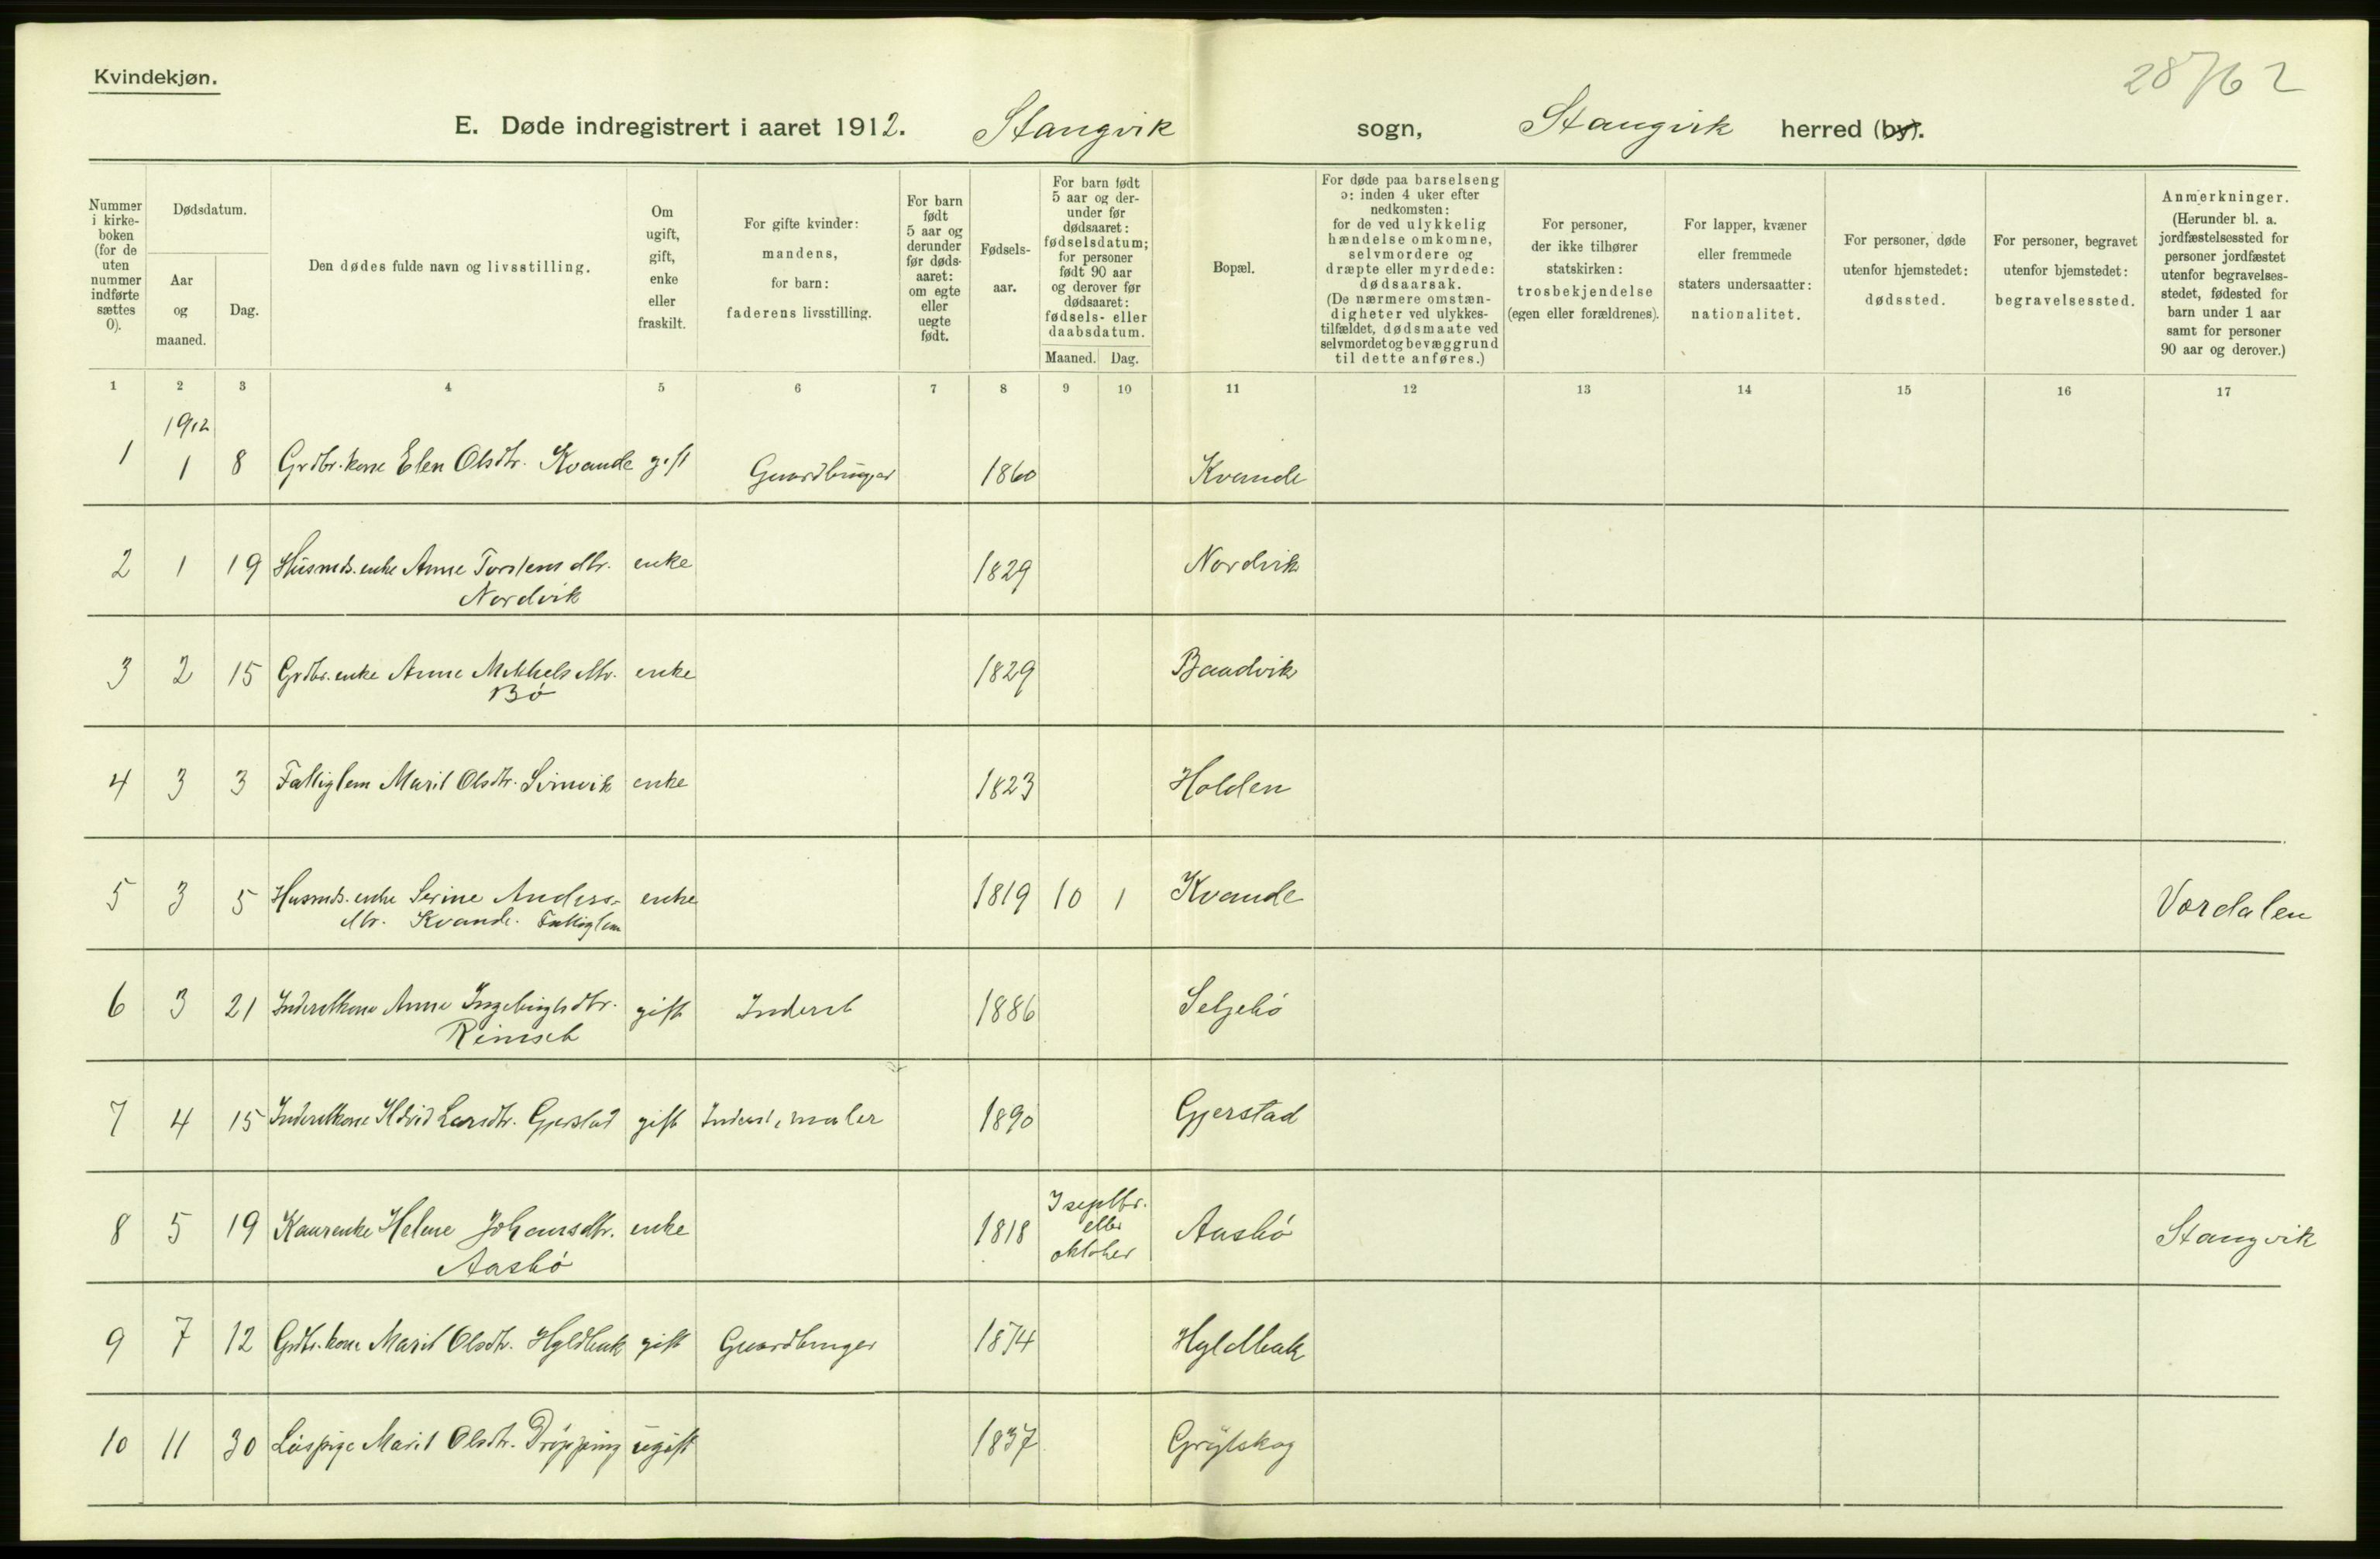 Kvindekjøn.
28762
E. Døde indregistrert i aaret 1912. Stangvik sogn, Stangvik herred (by).
Nummer i kirke-boken (for de uten nummer indførte sættes 0).
Dødsdatum.
Aar og maaned.
Dag.
Den dødes fulde navn og livsstilling.
Om ugift, gift, enke eller fraskilt.
For gifte kvinder: mandens, for barn: faderens livsstilling.
For barn født 5 aar og derunder før døds-aaret: om egte eller uegte født.
Fødsels-aar.
For barn født 5 aar og der-under før dødsaaret: fødselsdatum; for personer født 90 aar og derover før dødsaaret: fødsels- eller daabsdatum.
Maaned. Dag.
Bopæl.
For døde paa barselseng ɔ: inden 4 uker efter nedkomsten: for de ved ulykkelig hændelse omkomne, selvmordere og dræpte eller myrdede: dødsaarsak. (De nærmere omstæn-digheter ved ulykkes-tilfældet, dødsmaate ved selvmordet og bevæggrund til dette anføres.)
For personer, der ikke tilhører statskirken: trosbekjendelse (egen eller forældrenes).
For lapper, kvæner eller fremmede staters undersaatter: nationalitet.
For personer, døde utenfor hjemstedet: dødssted.
For personer, begravet utenfor bjemstedet: begravelsessted.
Anmerkninger. (Herunder bl. a. jordfæstelsessted for personer jordfæstet utenfor begravelses-stedet, fødested for barn under 1 aar samt for personer 90 aar og derover.)
1 2 3 4 5 6 7 8 9 10 11 12 13 14 15 16 17
1912
1 1 8 Grdbr. kone Elen Olsdtr. Kvande gift Gaardbruger 1860 Kvande
2 1 19 Husmds. enke Anne Torstensdtr. enke 1829 Nordvik
Nordvik
3 2 15 Grdbr. enke Anne Mikkelsdtr. enke 1829 Baadvik
Bø
4 3 3 Fattiglem Marit Olsdtr. Svinvik enke 1823 Holden
5 3 5 Husmds. enke Serine Anders- enke 1819 10 1 Kvande Vordalen
dtr. Kvande. Fattiglem
6 3 21 Inderstkone Anne Ingebrigtsdtr. gift Inderst 1886 Seljebø
Rimset
7 4 15 Inderstkone Ildrid Larsdtr. Gjerstad gift Inderst, maler 1890 Gjerstad
8 5 19 Kaarenke Helene Johansdtr. enke 1818 I septbr. eller oktober Aasbø Stangvik
Aasbø
9 7 12 Grdbr. kone Marit Olsdtr. Hyldbak gift Gaardbruger 1874 Hyldbak
10 11 30 Løspige Marit Olsdtr. Drøpping ugift 1837 Grytskog